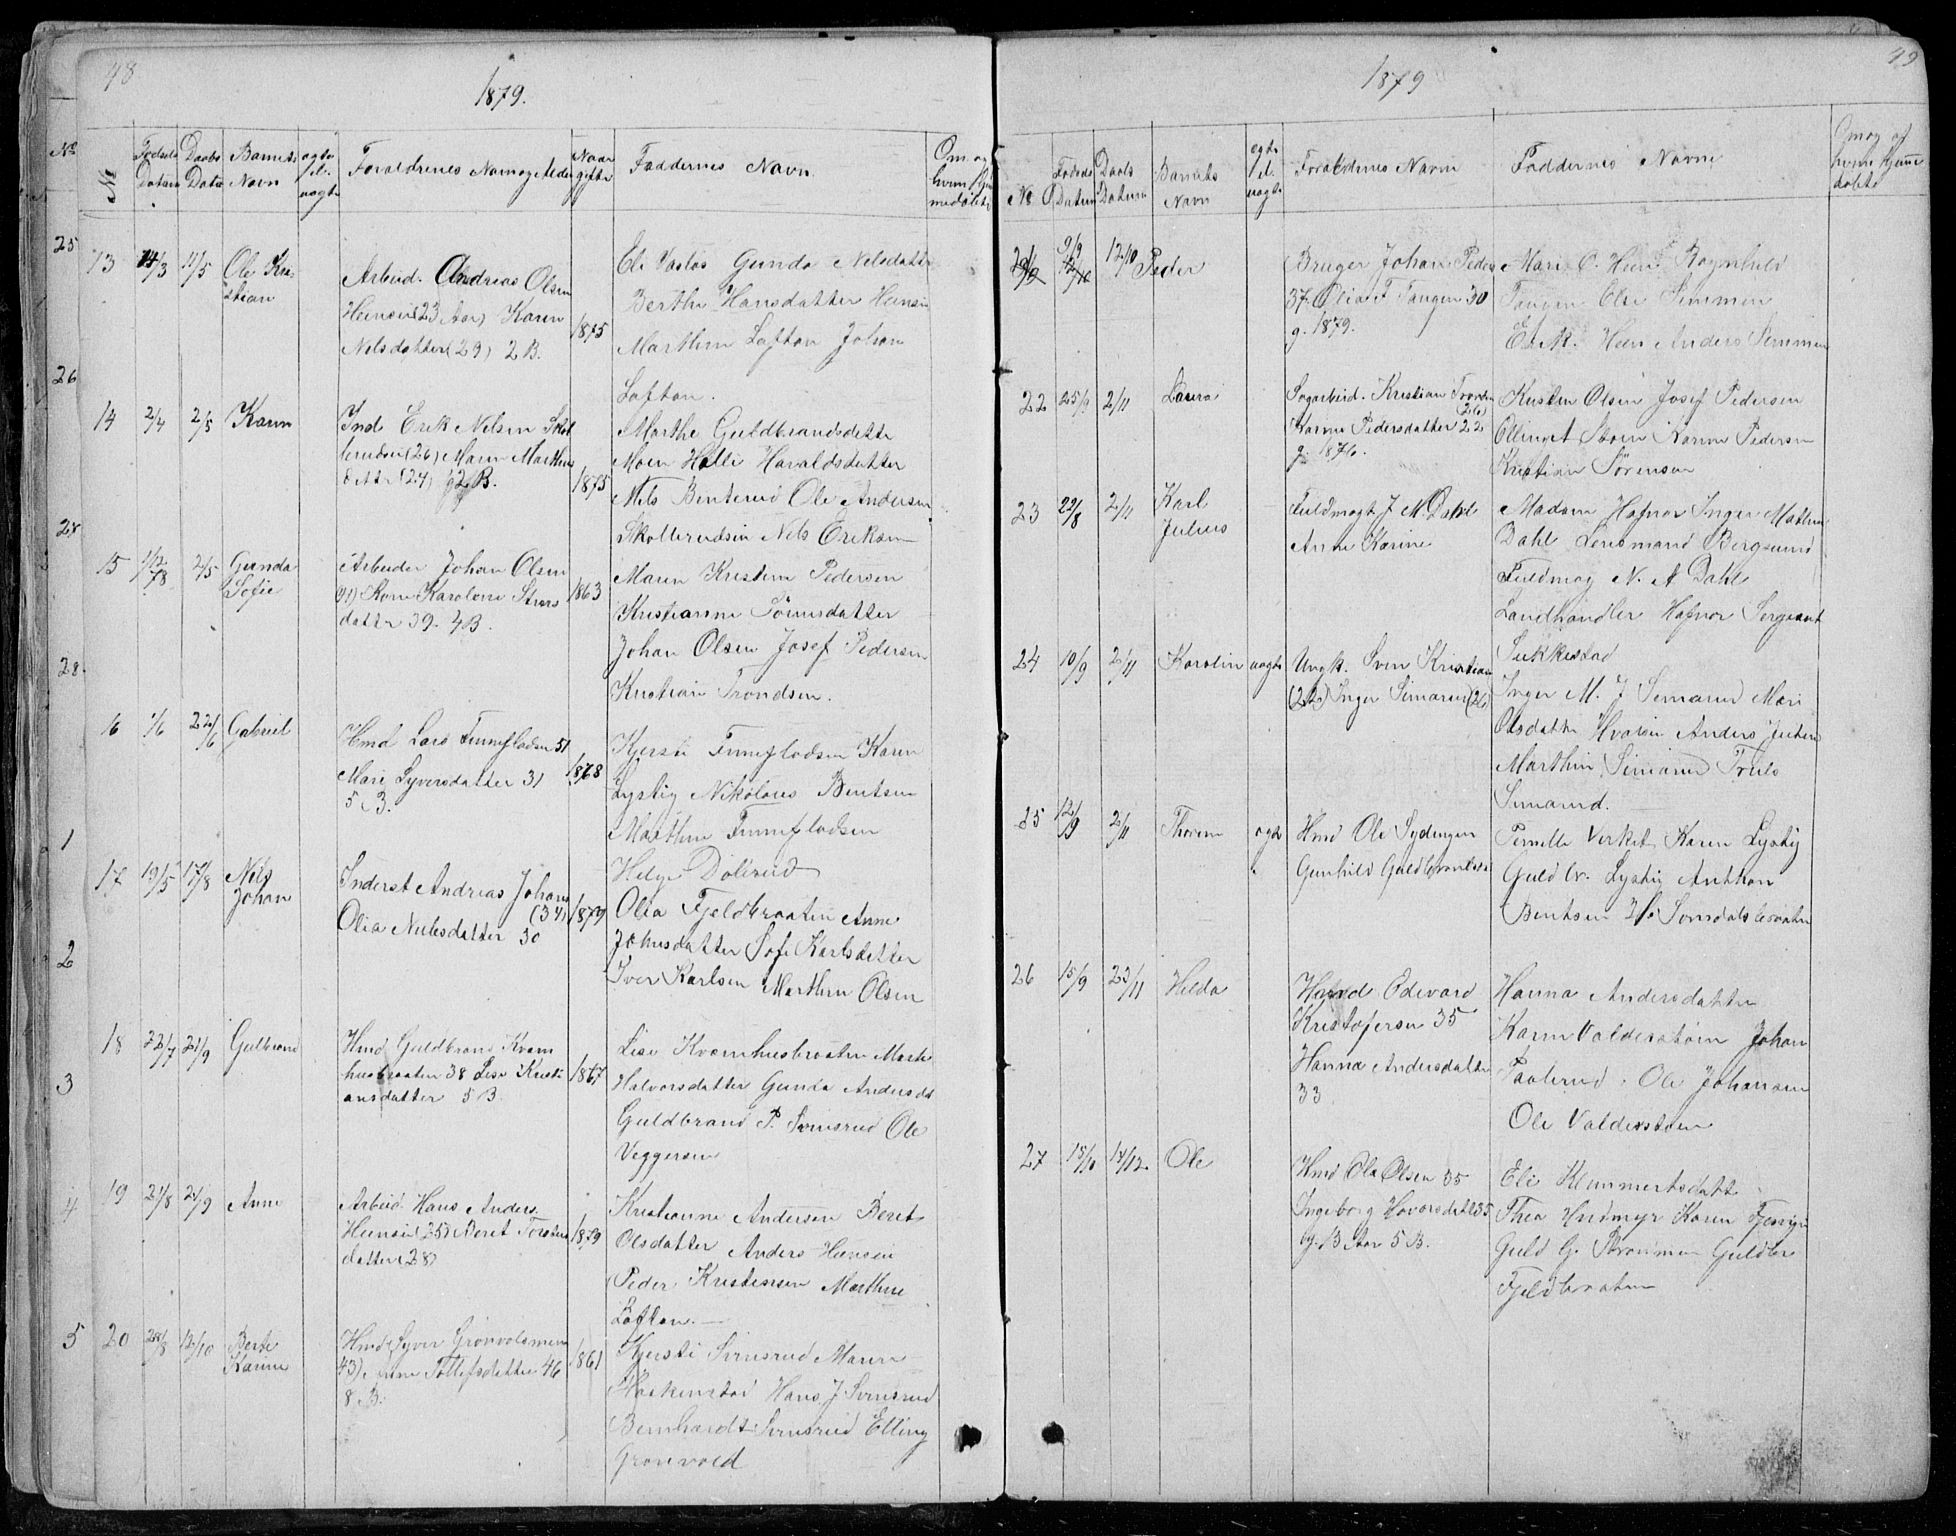 48
1879.
No
Fødsels Datum
Daabs Data
Barnets Navn
ægte el. uægte
Forældrenes Navn og Alder
Naar gifte
Faddernes Navn
Om og hvem hjemmedøbt
25
26
27
28.
1
2
3
4
5
13 14/3 11/5 Ole Kristian
Arbeid. Andreas Olsen
Heensei (23 Aar) Karen
Nelsdatter (29) 2 B.
1875
Eli Gunda Nelsdatter
Berthe Hansdatter Heensei
Marthin Lafton Johan
Lafton.
14 2/4 2/5 Karen
Ind. Erik Nelsen
(26) Maren Marthins
datter (24) 2 B.
1875
Marthe Guldbrandsdatter
Moen Helli Haraldsdatter
Nils Benterud Ole Andersen
Skollerudsein Nils Eriksen
15 1/12 78 2/5 Gunda Sofie
Arbeider Johan Olsen
41) Kone Karolene
datter 39. 4 B.
1863
Maren Kristine Pedersen
Kristianne
Johan Olsen Josef Pedersen
Kristian Trondsen.
16 1/6 22/6 Gabriel
Hmd Lars Finneflodsen 51
Mari Syversdatter 31
5 B.
1868
Kjersti Finneflodsen Karen
Lystig Nikolaus Bentsen
Marthin Finneflodsen
Helge Dölerud
17 19/5 17/8 Nils Johan
Inderst Andreas Johans
(34)
Olia Nubsdatter 30
1879
Olea Fjeldbraaten Anne
Johnsdatter Sofi Karlsdatter
Iver Karlsen Marthin Olsen
18 22/7 21/9 Gulbrand
Hmd Guldbrand Kvern
husbraaten 38 Lise Kristi
ansdatter 5 B.
1867
Lise Kvernhusbraaten Marte
Halvorsdatter Gunda Andersdt
Guldbrand P. Svensrud Ole
Veggersen
19 21/8 21/9 Anne
Arbeid. Hans Anders.
Heensei (25) Beret Torstens
datter (28)
1879
Kristianne Andersen Beret
Olsdatter Anders Heensei
Peder Kristensen Marthin
Lafton.
20 28/8 12/10 Berte Karine
Hmd Syver Grönvoldsmoen
43) Anne Tollefsdatter 46
8 B.
1861
Kjersti Svensrud Maren
Haakenstad Hans J Svensrud
Bernhardt Svensrud Elling
Grönvold
49
1879
No
Fødsels Datum
Daabs Datum
Barnets Navn
ægte el. uægte
Forældrenes Navn
Faddernes Navne
Om og af hvem hjemmedøbte
21 9/9 12/10 Peder
Bruger Johan Peders
37. Olia T Tangen 30
g. 1879.
Mari O. Heen Ragnhild
Tangen Else Semmen
Erik Heen Anders Semmen
22 25/9 2/11 Laura
Sagarbeid. Kristian Tronds
(26)
Karen Pedersdatter 22
g. 1876.
Kristen Olsen Josef Pedersen
Karen Pedersen
Kristian Sörensen
23 22/8 2/11 Karl Julius
Fuldmægt J M. Dahl
Anne Karine
Madam Hafnor Inger Mathea
Dahl Lensmand Bergsund
Fuldmæg N. A Dahl
Landhandler Hafnor Sergeant
Sukkestad
24 10/9 2/11 Karolin uægte
Ungk. Sven Kristian
(22) Inger Simarud (26)
Inger M. J Semarud Mari
Olsdatter Anders Julien
Marthin Simarud Truls
Simarud.
25 12/9 2/11 Thorine ægte
Hmd Ole Sydengen
Gunhild Guldbrandsd
Pernille Verket Karen Lystig
Guldbr. Lystig Anthon
Bentsen Somdalsbraaten
26 15/9 23/11 Hilda
Hmd Edevard
Kristofersen 35
Hanna Andersdatter
33
Hanna Andersdatter
Karen Valdersstöen Johan
Paalerud. Ole Johansen
Ole Valdersstöen
27 15/10 14/12 Ole
Hmd Ole Olsen 35
Ingeborg Hovorsdatt 35
g. 13 Aar 5 B.
Eli Klemmertsdatt
Thea Hvidmyr Karen
Guld G. Strömmen Guldbr
Fjeldbraaten